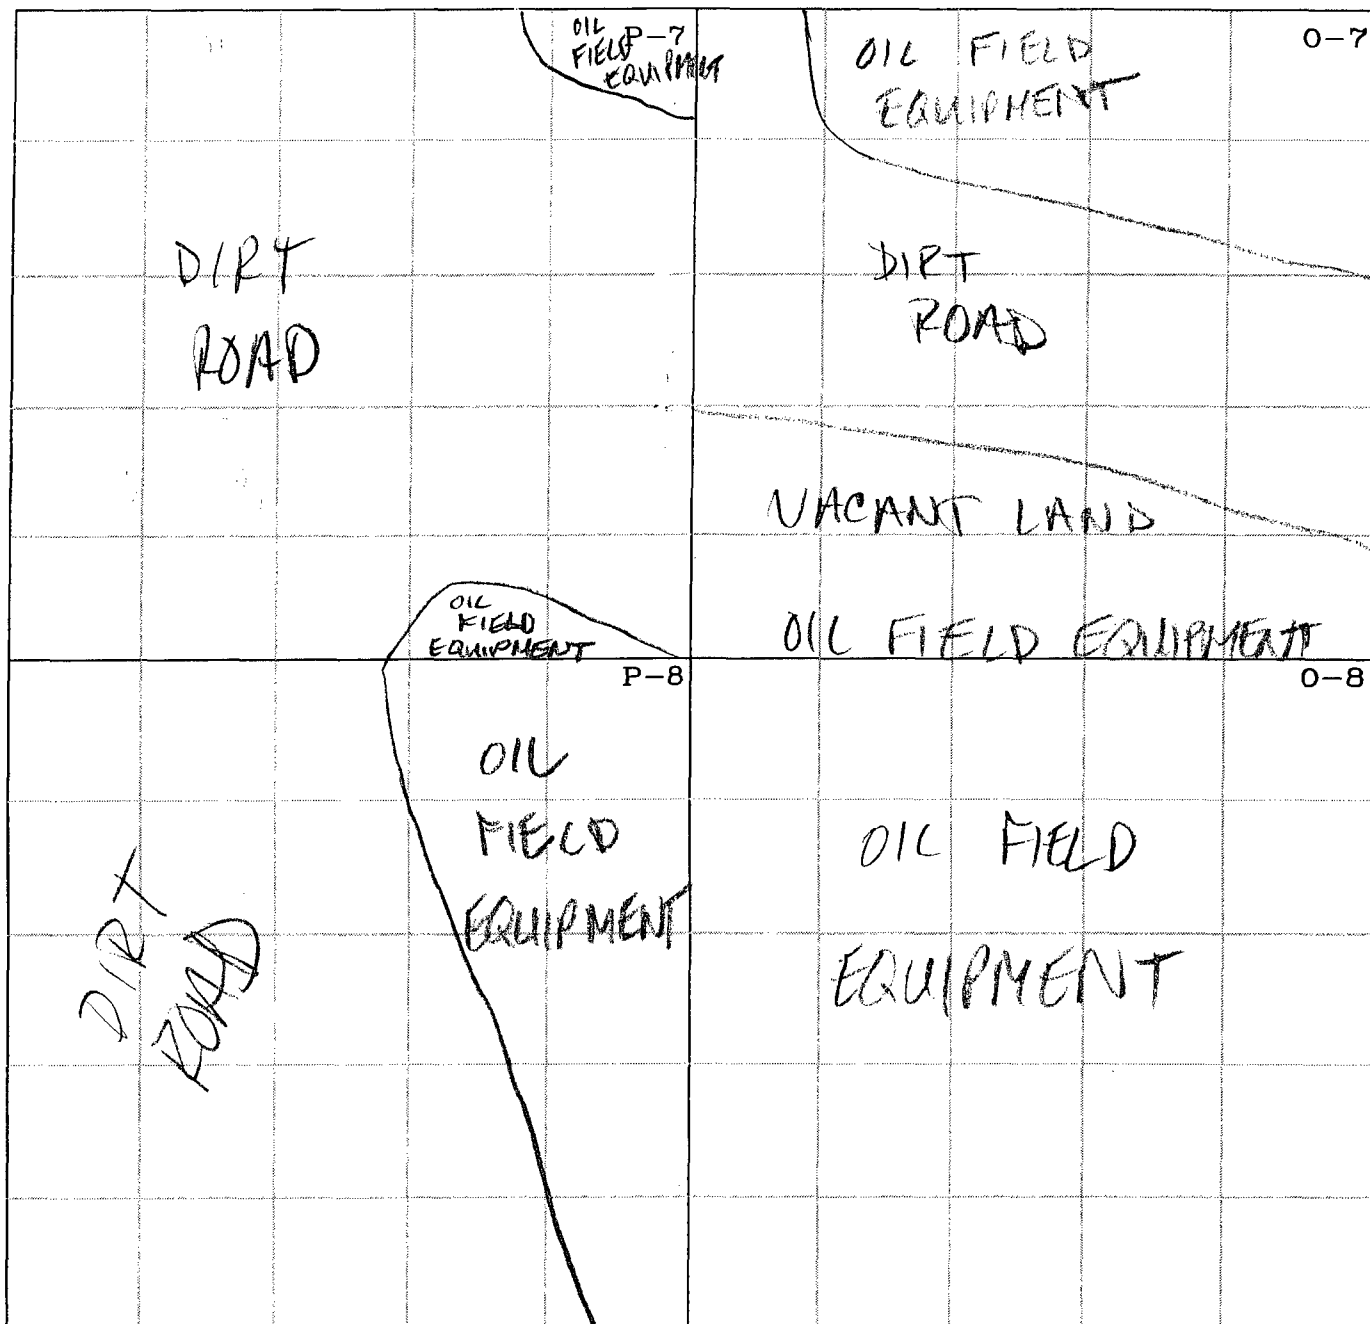 OIL
FIELD
EQUIPMENT
P-7
OIL FIELD
EQUIPMENT
O-7
DIRT
ROAD
DIRT
ROAD
VACANT LAND
OIL
FIELD
EQUIPMENT
OIL FIELD EQUIPMENT
P-8
O-8
OIL
FIELD
EQUIPMENT
OIL FIELD
EQUIPMENT
DIRT
ROAD